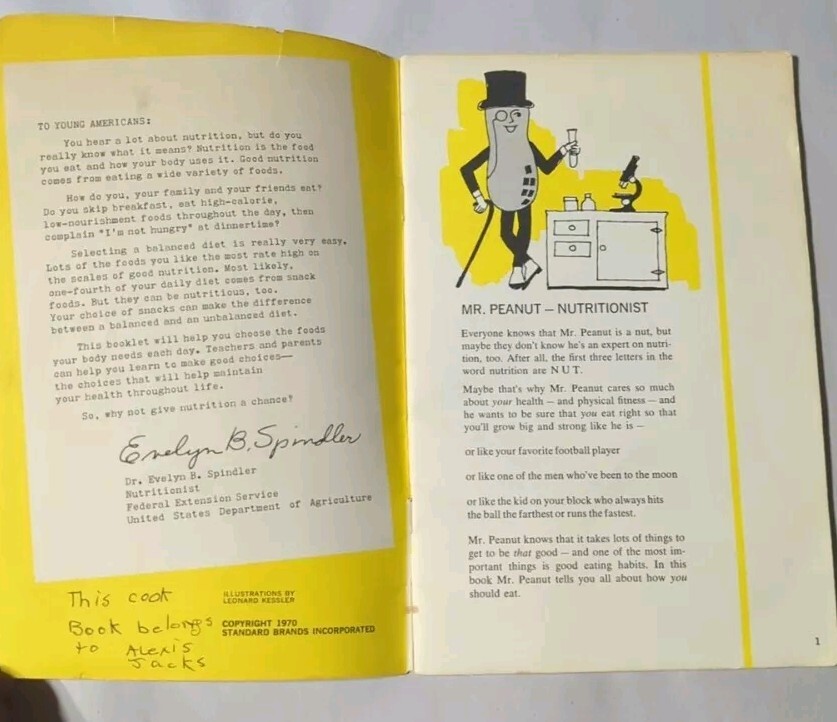 TO YOUNG AMERICANS:
You hear a lot about nutrition, but do you
really know what it means? Nutrition is the food
you eat and how your body uses it. Good nutrition
comes from eating a wide variety of foods.
How do you, your family and your friends eat?
Do you skip breakfast, eat high-calorie,
low-nourishment foods throughout the day, then
complain "I'm not hungry" at dinnertime?
Selecting a balanced diet is really very easy.
Lots of the foods you like the most rate high on
the scales of good nutrition. Most likely,
one-fourth of your daily diet comes from snack
foods. But they can be nutritious, too.
Your choice of snacks can make the difference
between a balanced and an unbalanced diet.
This booklet will help you choose the foods
your body needs each day. Teachers and parents
can help you learn to make good choices—
the choices that will help maintain
your health throughout life.
So, why not give nutrition a chance?
Evelyn B. Spindler
Dr. Evelyn B. Spindler
Nutritionist
Federal Extension Service
United States Department of Agriculture
This cook
Book belongs
to Alexis
Jacks
ILLUSTRATIONS BY
LEONARD KESSLER
COPYRIGHT 1970
STANDARD BRANDS INCORPORATED
MR. PEANUT – NUTRITIONIST
Everyone knows that Mr. Peanut is a nut, but
maybe they don't know he's an expert on nutri-
tion, too. After all, the first three letters in the
word nutrition are N U T.
Maybe that's why Mr. Peanut cares so much
about your health – and physical fitness – and
he wants to be sure that you eat right so that
you'll grow big and strong like he is –
or like your favorite football player
or like one of the men who've been to the moon
or like the kid on your block who always hits
the ball the farthest or runs the fastest.
Mr. Peanut knows that it takes lots of things to
get to be that good – and one of the most im-
portant things is good eating habits. In this
book Mr. Peanut tells you all about how you
should eat.
1